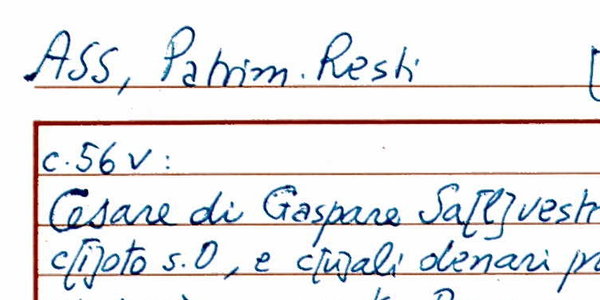 ASS, Patrim. Resti [
c. 56 v :
Cesare di Gaspare Sa[l]vestr
c[i]oto s. D, e c[u]ali denari pr